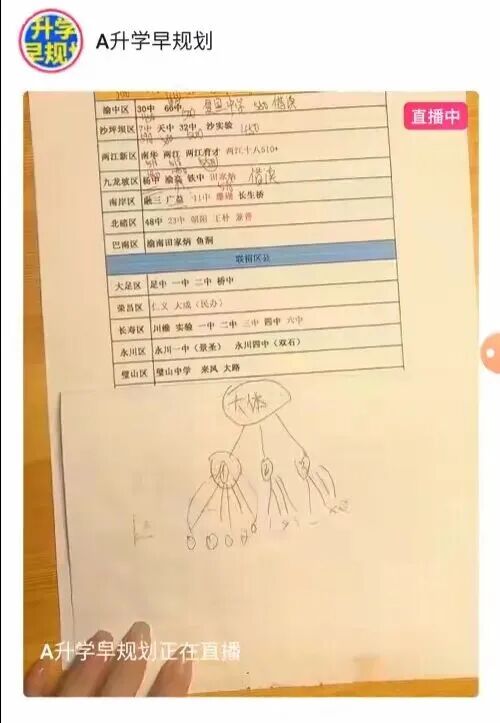 升学
早规划
A升学早规划
直播中
渝中区 30中 66中 借读
沙坪坝区 7中 天中 32中 沙实验
两江新区 南华 两江 两江育才 两江十八510+
九龙坡区 杨中 渝高 铁中 田家炳 借读
南岸区 融三 广益 11中 珊瑚 长生桥
北碚区 48中 23中 朝阳 王朴 兼善
巴南区 渝南田家炳 鱼洞
联招区县
大足区 足中 一中 二中 桥中
荣昌区 仁义 大成（民办）
长寿区 川维 实验 一中 二中 三中 四中 六中
永川区 永川一中（景圣） 永川四中（双石）
璧山区 璧山中学 来凤 大路
大体
A升学早规划正在直播